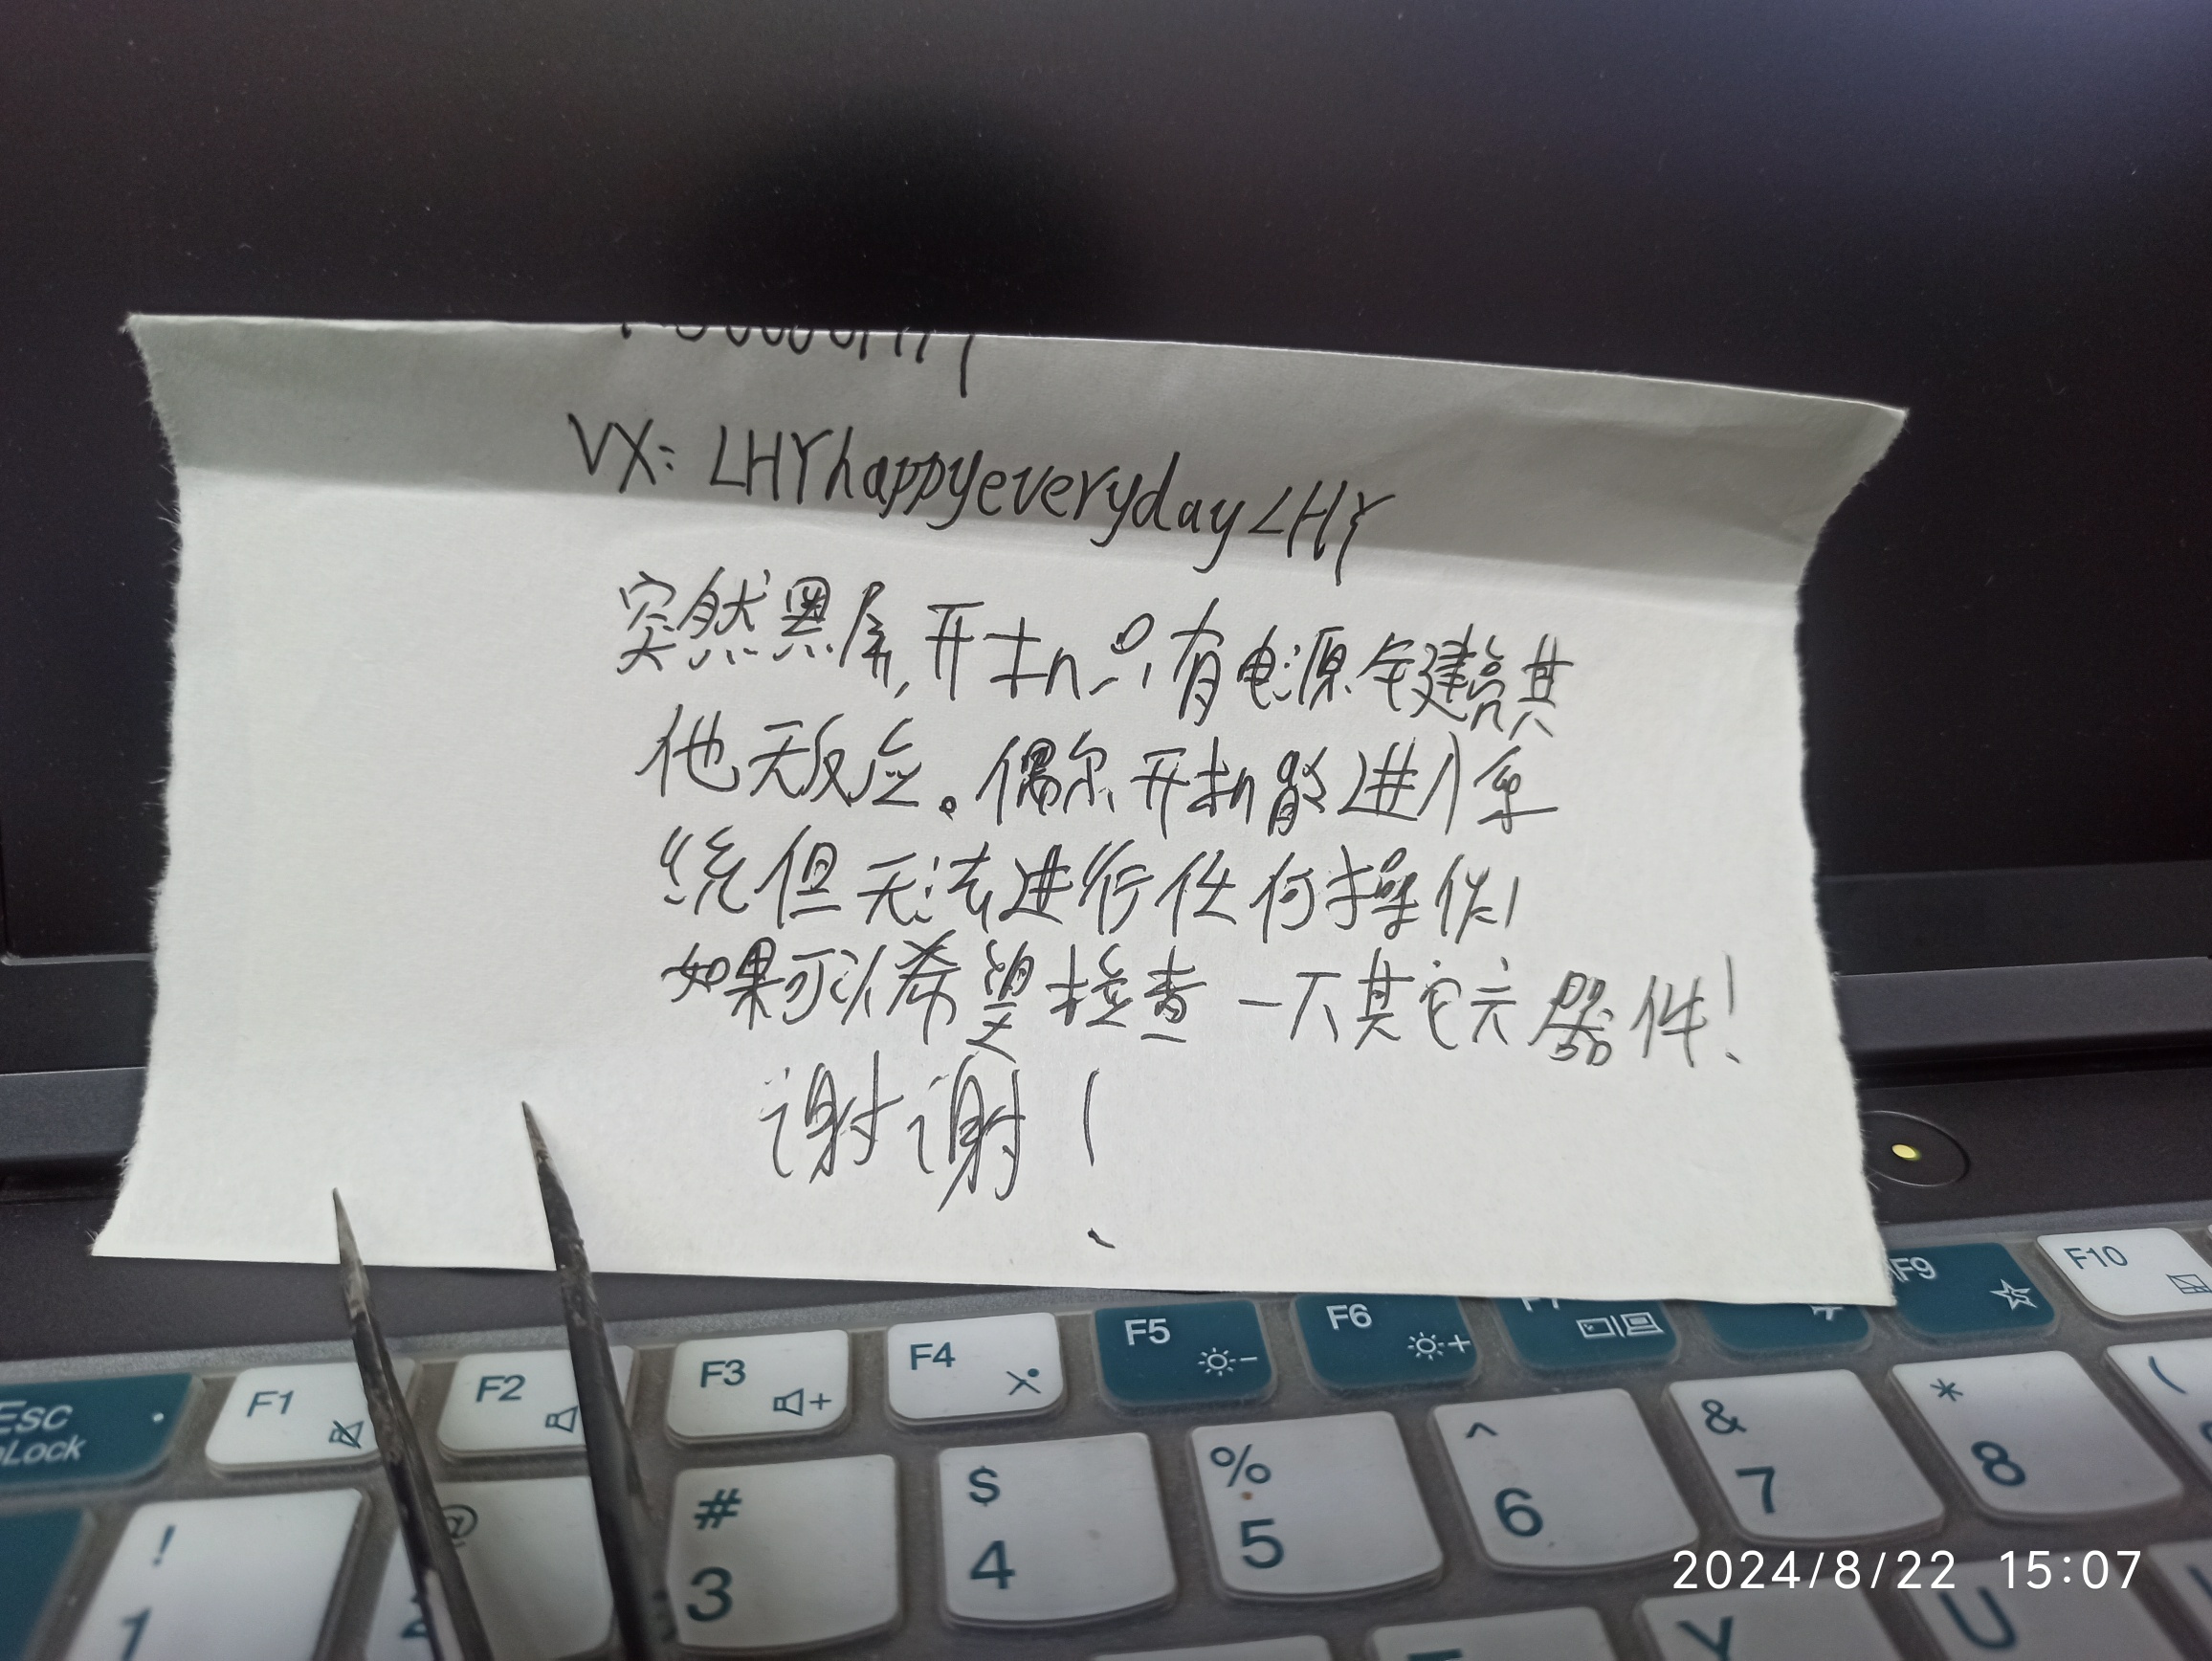 VX: LHYhappyeverydayLHY
突然黑屏,开机只有电源键亮其
他无反应。偶尔开机能进入系
统但无法进行任何操作!
如果可以希望检查一下其它元器件!
谢谢!
Esc
nLock
F1
F2
F3
F4
F5
F6
F9
F10
!
1
@
2
#
3
$
4
%
5
^
6
&
7
*
8
(
Y
U
2024/8/22 15:07